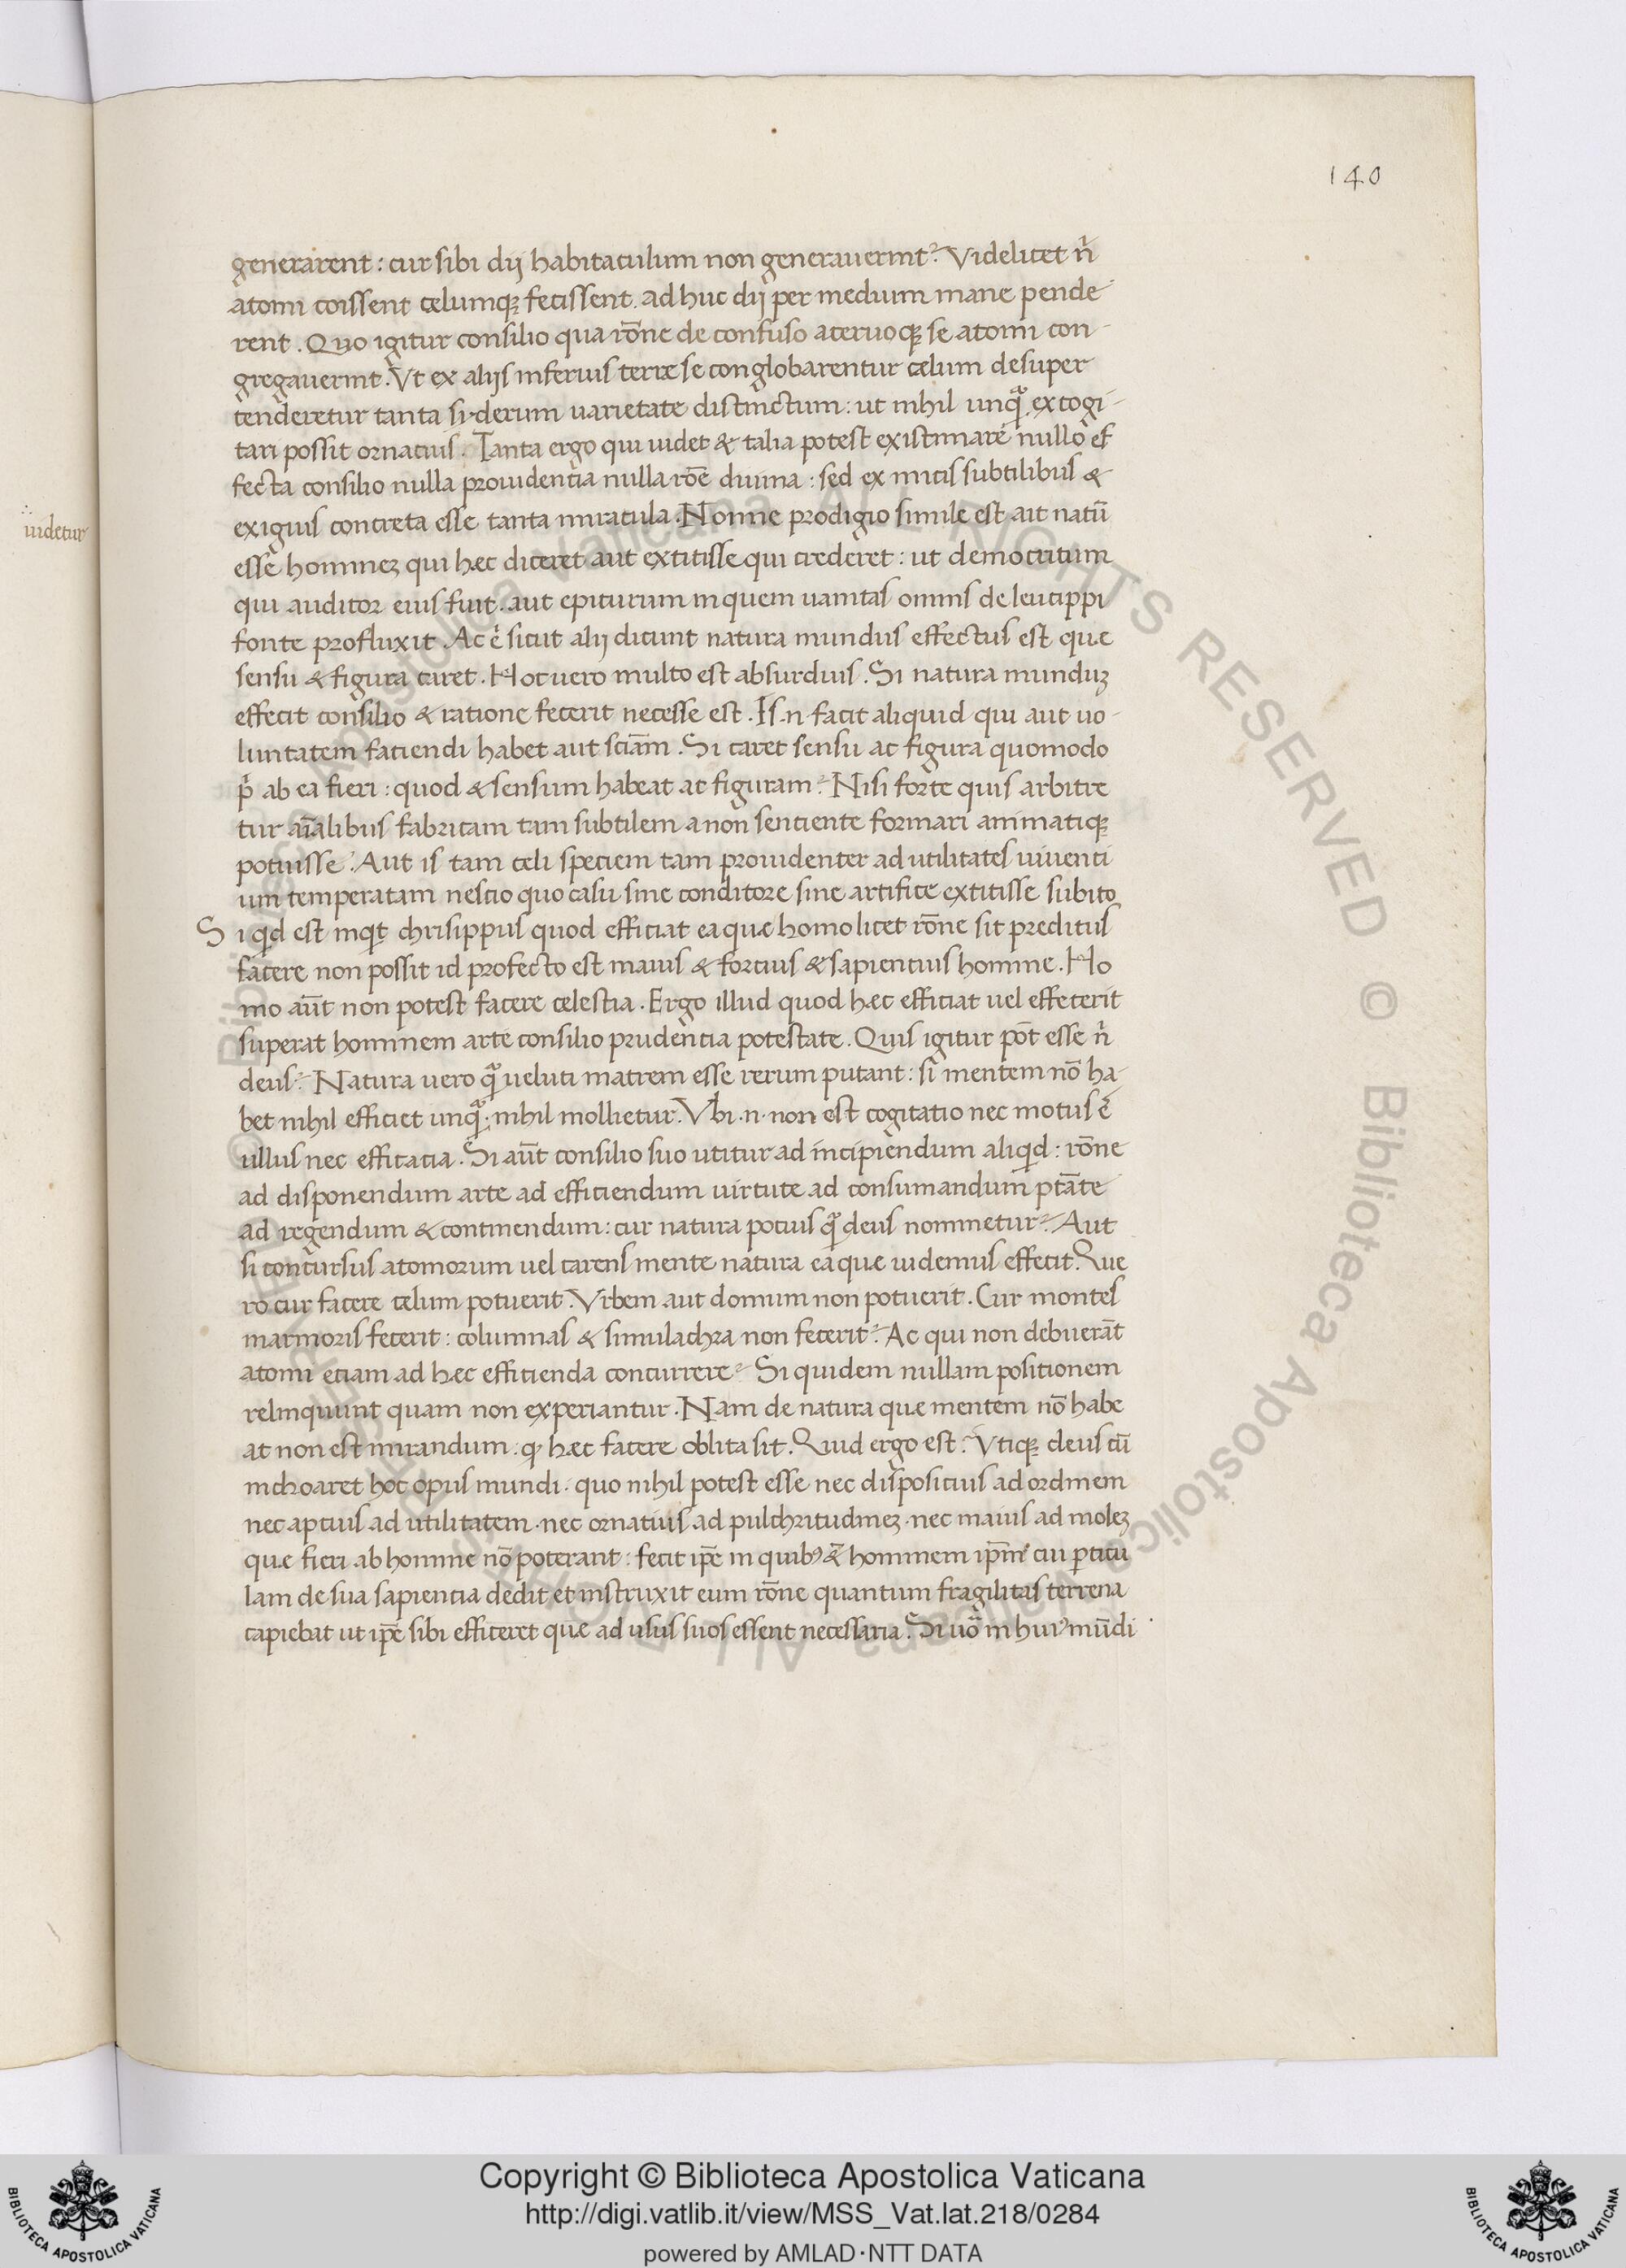 140
generarent: cur sibi dii habitaculum non generauerint? Videlicet n̑
atomi coissent celumq; fecissent. ad huc dii per medium inane pende
rent. Quo igitur consilio qua rōne de confuso aceruoq; se atomi con-
gregauerint. Vt ex aliis inferius terræ se conglobarentur celum desuper
tenderetur tanta siderum uarietate distinctum: ut nihil unq̃ excogi-
tari possit ornatius. Tanta ergo qui uidet & talia potest existimare nullo ef
fecta consilio nulla prouidentia nulla rōe diuina: sed ex mitis subtilibus &
exiguis concreta esse tanta miracula. Nonne prodigio simile est aut natū
uidetur
esse hominez qui hæc diceret aut extitisse qui crederet: ut democritum
qui auditor eius fuit. aut epicurum in quem uanitas omnis de leucippi
fonte profluxit. Ac ē sicut alii dicunt natura mundus effectus est que
sensu & figura caret. Hoc uero multo est absurdius. Si natura munduz
effecit consilio & ratione fecerit necesse est. Is .n. facit aliquid qui aut uo-
luntatem faciendi habet aut sciām. Si caret sensu ac figura quomodo
p̑ ab ea fieri: quod & sensum habeat ac figuram? Nisi forte quis arbitre
tur aīalibus fabricam tam subtilem a non sentiente formari animatiq;
potuisse? Aut is tam celi speciem tam prouidenter ad utilitates uiuenti
um temperatam nescio quo casu sine conditore sine artifice extitisse subito
Si qd est inqt chrisippus quod efficiat ea quæ homo licet rōne sit preditus
facere non possit id profecto est maius & fortius & sapientius homine. Ho
mo aūt non potest facere celestia. Ergo illud quod hæc efficiat uel effecerit
superat hominem arte consilio prudentia potestate. Quis igitur pōt esse n̑
deus? Natura uero q̃ ueluti matrem esse rerum putant: si mentem nō ha-
bet nihil efficiet unq̃. nihil mollietur. Vbi .n. non est cogitatio nec motus ē
ullus nec efficacia. Si aūt consilio suo utitur ad incipiendum aliqd: rōne
ad disponendum arte ad efficiendum uirtute ad consumandum ptāte
ad regendum & continendum: cur natura potius q̃ deus nominetur? Aut
si concursus atomorum uel carens mente natura ea quæ uidemus effecit. Que
ro cur facere celum potuerit. Vrbem aut domum non potuerit. Cur montes
marmoris fecerit: columnas & simulachra non fecerit? Ac qui non debuerāt
atomi etiam ad hæc efficienda concurrere? Si quidem nullam positionem
relinquunt quam non experiantur. Nam de natura que mentem nō habe
at non est mirandum: q̃ hæc facere oblita sit. Quid ergo est? Vtiq; deus cū
inchoaret hoc opus mundi. quo nihil potest esse nec dispositius ad ordinem
nec aptius ad utilitatem. nec ornatius ad pulchritudinez. nec maius ad molez
quæ fieri ab homine nō poterant: fecit ip̄e in quibꝰ & hominem ip̄m cui ꝑticu
lam de sua sapientia dedit et instruxit eum rōne quantum fragilitas terrena
capiebat ut ip̄e sibi efficeret quæ ad usus suos essent necessaria. Si uō in huiꝰ mūdi
© Biblioteca Apostolica Vaticana ALL RIGHTS RESERVED
Copyright © Biblioteca Apostolica Vaticana
http://digi.vatlib.it/view/MSS_Vat.lat.218/0284
powered by AMLAD·NTT DATA
BIBLIOTECA APOSTOLICA VATICANA
BIBLIOTECA APOSTOLICA VATICANA